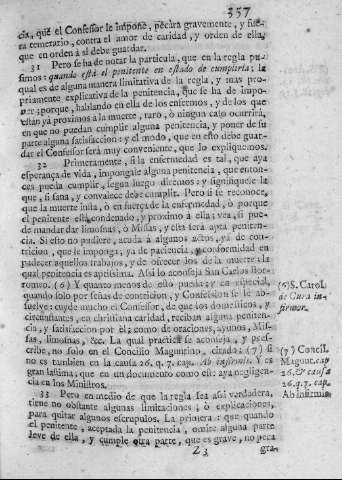 357
cia, que el Confessor le impone, pecàra gravemente, y fue-
ra temerario, contra el amor de caridad, y orden de ella,
que en orden à al debe guardar.
31 Pero se ha de notar la particula, que en la regla pu-
simos: quando està el penitente en estado de cumplirla; la
qual es de alguna manera limitativa de la regla, y mas pro-
priamente explicativa de la penitencia, que se ha de impo-
ner; porque, hablando en ella de los enfermos, y de los que
estàn yà proximos à la muerte, raro, ò ningun caso ocurrirà,
en que no puedan cumplir alguna penitencia, y poner de su
parte alguna satisfaccion: y el modo, que en esto debe guar-
dar el Confessor serà muy conveniente, que lo expliquemos.
32 Primeramente, si la enfermedad es tal, que aya
esperança de vida, impongale alguna penitencia, que enton-
ces pueda cumplir, segun luego diremos: y signifiquele la
que, si sana, y convalece debe cumplir. Pero si se reconoce,
que la muerte insta, ò en fuerça de la enfermedad, ò porque
el penitente està condenado, y proximo à ella; vea, si pue-
de mandar dar limosnas, ò Missas, y esta serà apta peniten-
cia. Si esto no pudiere, acuda à algunos actos, yà de con-
tricion, que le imponga; yà de paciencia, y conformidad en
padecer aquellos dolores, y de ofrecer los de la muerte: la
qual penitencia es aptissima. Assi lo aconseja San Carlos Bor-
romeo. (6) Y quanto menos de esto pueda: y en especial,
quando solo por señas de contricion, y Confession se le ab-
suelve: cuyde mucho el Confessor, de que los domesticos, y
circunstantes, con christiana caridad, reciban alguna peniten-
cia, y satisfaccion por èl; como de oraciones, ayunos, Mis-
sas, limosnas, &c. La qual practica se aconseja, y pres-
cribe, no solo en el Concilio Maguntino, citado: (7) si-
no es tambien en la causa 26. q. 7. cap. Ab infirmis. Y es
gran lastima; que en un documento como este aya negligen-
cia en los Ministros.
33 Pero en medio de que la regla sea assi verdadera,
tiene no obstante algunas limitaciones, ò explicaciones,
para quitar algunos escrupulos. La primera: que quando
el penitente, aceptada la penitencia, omite alguna parte
leve de ella, y cumple otra parte, que es grave, no peca
Z 3 gra-
(6) S. Carol.
de Cura in-
firmor.
(7) Concil.
Magunt. cap.
26. Et causa
26. q. 7. cap.
Ab infirmis.